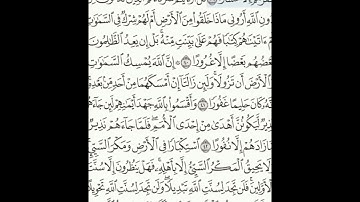 دُونِ ٱللَّهِ أَرُونِى مَاذَا خَلَقُوا۟ مِنَ ٱلْأَرْضِ أَمْ لَهُمْ شِرْكٌ فِى ٱلسَّمَٰوَٰتِ
أَمْ ءَاتَيْنَٰهُمْ كِتَٰبًا فَهُمْ عَلَىٰ بَيِّنَتٍ مِّنْهُ ۚ بَلْ إِن يَعِدُ ٱلظَّٰلِمُونَ
بَعْضُهُم بَعْضًا إِلَّا غُرُورًا ۞ إِنَّ ٱللَّهَ يُمْسِكُ ٱلسَّمَٰوَٰتِ
وَٱلْأَرْضَ أَن تَزُولَا ۚ وَلَئِن زَالَتَآ إِنْ أَمْسَكَهُمَا مِنْ أَحَدٍ مِّنۢ بَعْدِهِ
كَانَ حَلِيمًا غَفُورًا وَأَقْسَمُوا۟ بِٱللَّهِ جَهْدَ أَيْمَٰنِهِمْ لَئِن جَآءَهُمْ
نَذِيرٌ لَّيَكُونُنَّ أَهْدَىٰ مِنْ إِحْدَى ٱلْأُمَمِ ۖ فَلَمَّا جَآءَهُمْ نَذِيرٌ
مَّا زَادَهُمْ إِلَّا نُفُورًا ٱسْتِكْبَارًا فِى ٱلْأَرْضِ وَمَكْرَ ٱلسَّيِّئِ
وَلَا يَحِيقُ ٱلْمَكْرُ ٱلسَّيِّئُ إِلَّا بِأَهْلِهِ ۚ فَهَلْ يَنظُرُونَ إِلَّا سُنَّتَ
ٱلْأَوَّلِينَ ۚ فَلَن تَجِدَ لِسُنَّتِ ٱللَّهِ تَبْدِيلًا ۖ وَلَن تَجِدَ لِسُنَّتِ ٱللَّهِ تَحْوِيلًا